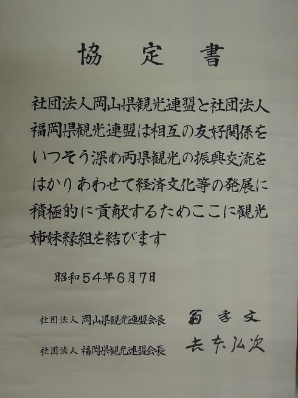 協定書
社団法人岡山県観光連盟と社団法人
福岡県観光連盟は相互の友好関係を
いつそう深め両県観光の振興交流を
はかりあわせて経済文化等の発展に
積極的に貢献するためここに観光
姉妹縁組を結びます
昭和54年6月7日
社団法人 岡山県観光連盟会長
社団法人 福岡県観光連盟会長 吉本弘次